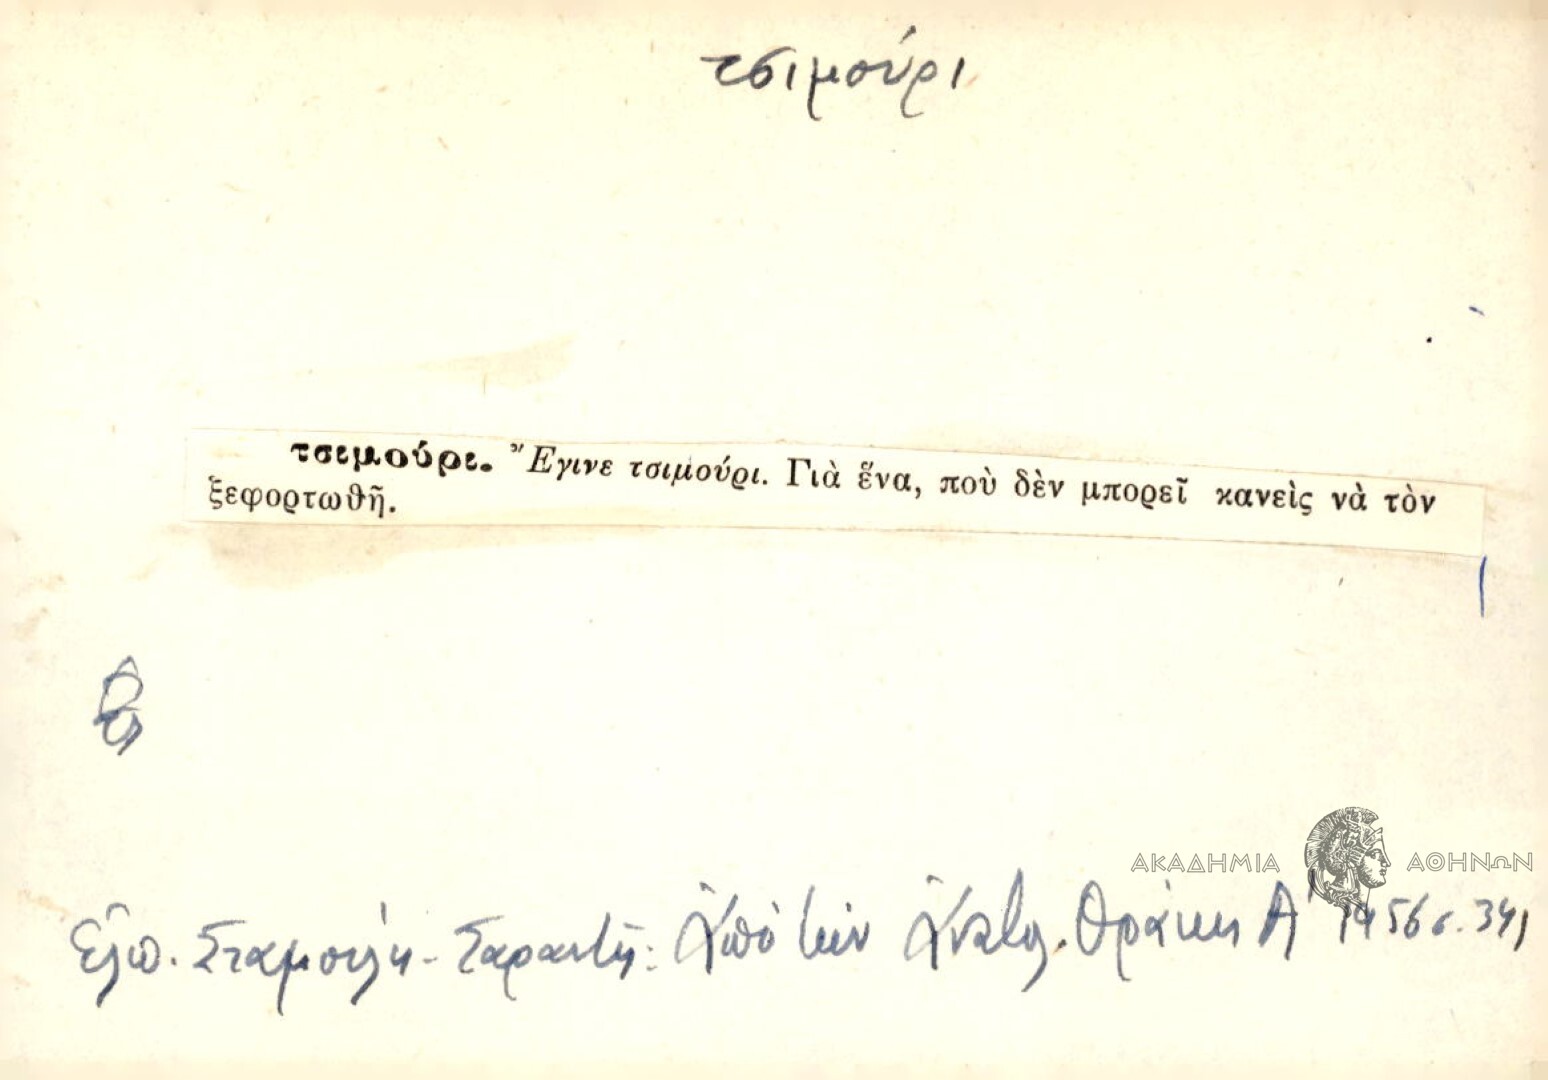 τσιμούρι
τσιμούρι. Ἔγινε τσιμούρι. Γιὰ ἕνα, ποὺ δὲν μπορεῖ κανεὶς νὰ τὸν
ξεφορτωθῆ.
ΑΚΑΔΗΜΙΑ ΑΘΗΝΩΝ
Ἐλπ. Σταμούλη - Σαραντῆ: Ἀπὸ τὴν Ἀνατολ. Θράκη Α' 1956 σ. 341